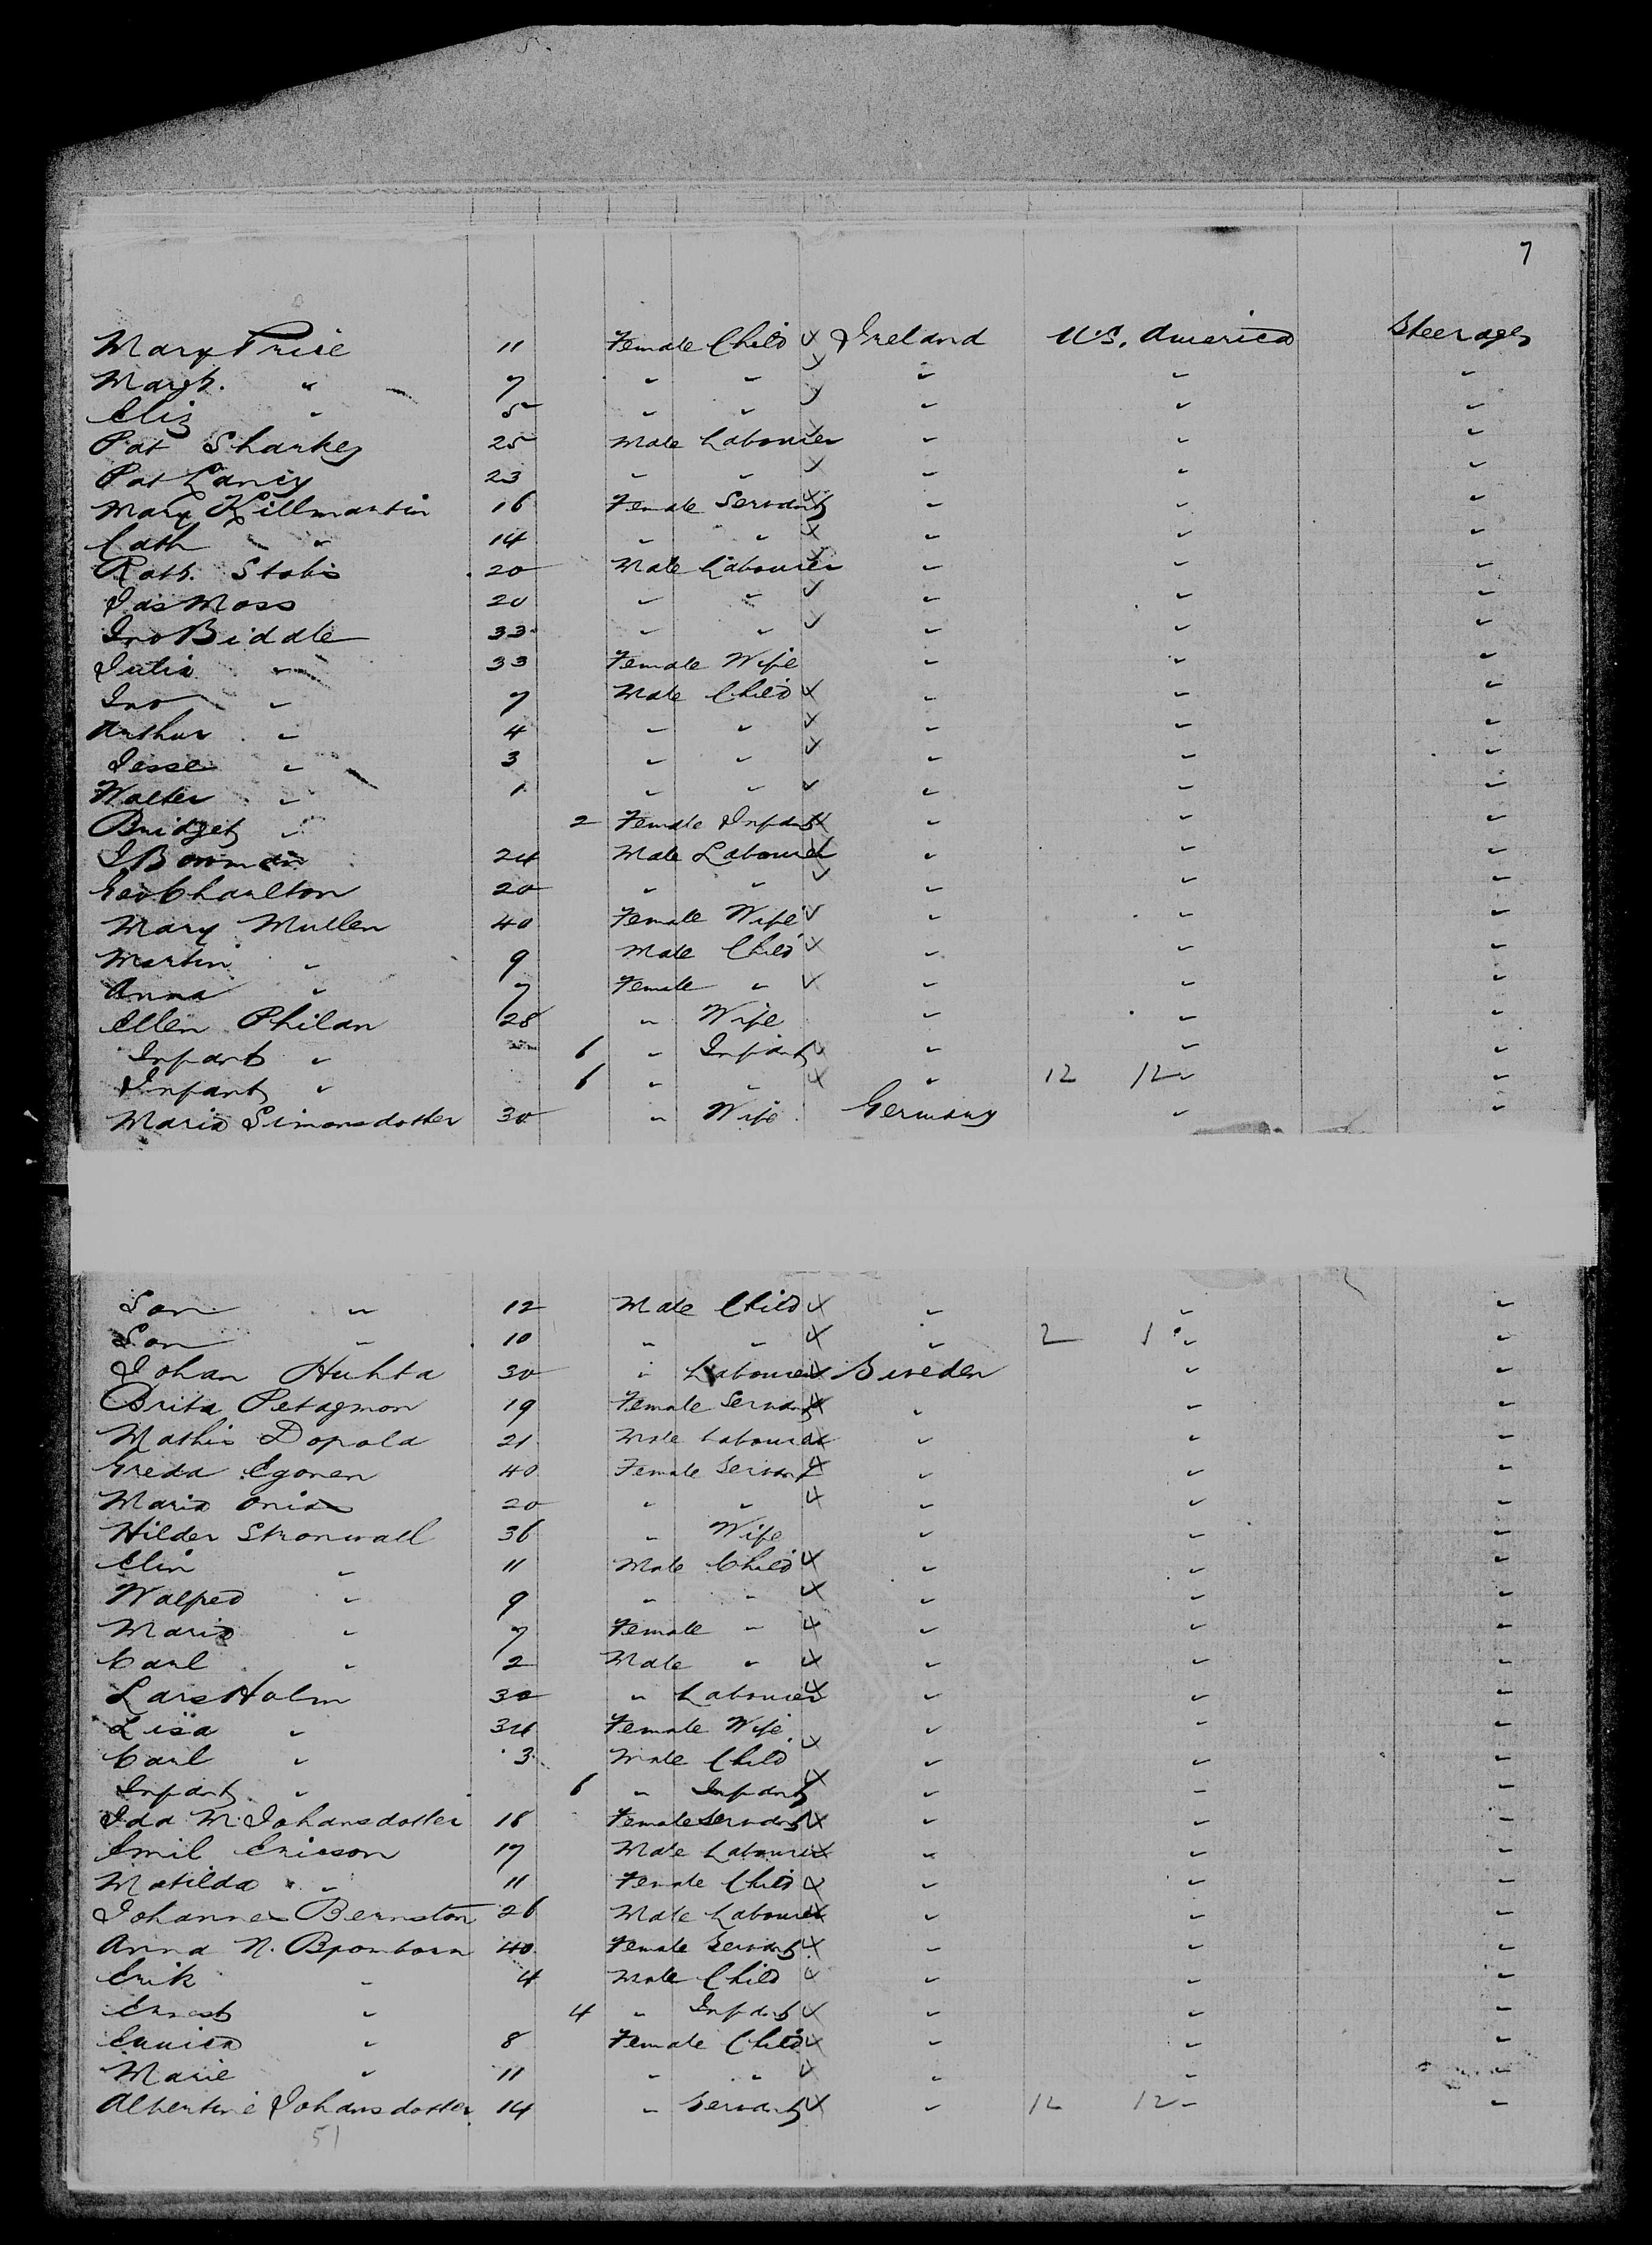 7
Mary Price 11 Female Child Ireland U.S. America Steerage
Margt. " 7 " " " " "
Eliz " 5 " " " " "
Pat Sharkey 25 Male Labourer " " "
Pat Lancy 23 " " " " "
Mary Killmartin 16 Female Servant " " "
Cath " 14 " " " " "
20 Male Labourer " " "
Jas Moss 20 " " " " "
Jno Biddle 33 " " " " "
Julia " 33 Female Wife " " "
Jno " 7 Male Child " " "
Arthur " 4 " " " " "
Jesse " 3 " " " " "
Walter " 1 " " " " "
Bridget " 2 Female Infant " " "
J Bowman 24 Male Labourer " " "
Geo Charlton 20 " " " " "
Mary Mullen 40 Female Wife " " "
Martin " 9 Male Child " " "
Anna " 7 Female " " " "
Ellen Philan 28 " Wife " " "
Infant " 6 " Infant " " "
Infant " 6 " " " 12 12 " "
Maria Simonsdotter 30 " Wife Germany " "
Son " 12 Male Child " " "
Son " 10 " " " 2 1 " "
Johan Huhta 30 " Labourer Sweden " "
Brita Petagmon 19 Female Servant " " "
Mathis Dopola 21 Male Labourer " " "
Greda Egonen 40 Female Servant " " "
Maria 20 " " " " "
Hilder Stronwall 36 " Wife " " "
Elin " 11 Male Child " " "
Walfred " 9 " " " " "
Maria " 7 Female " " " "
Carl " 2 Male " " " "
Lars Holm 30 " Labourer " " "
Lisa " 34 Female Wife " " "
Carl " 3 Male Child " " "
Infant " 6 " Infant " " "
Ida M. Johansdotter 18 Female Servant " " "
Emil Ericson 17 Male Labourer " " "
Matilda " 11 Female Child " " "
Johannes Bernston 26 Male Labourer " " "
Anna N. 40 Female Servant " " "
Erik " 4 Male Child " " "
Ernest " 4 " Infant " " "
" 8 Female Child " " "
Marie " 11 " " " " "
Albertine Johansdotter 14 " Servant " 12 12 " "
51